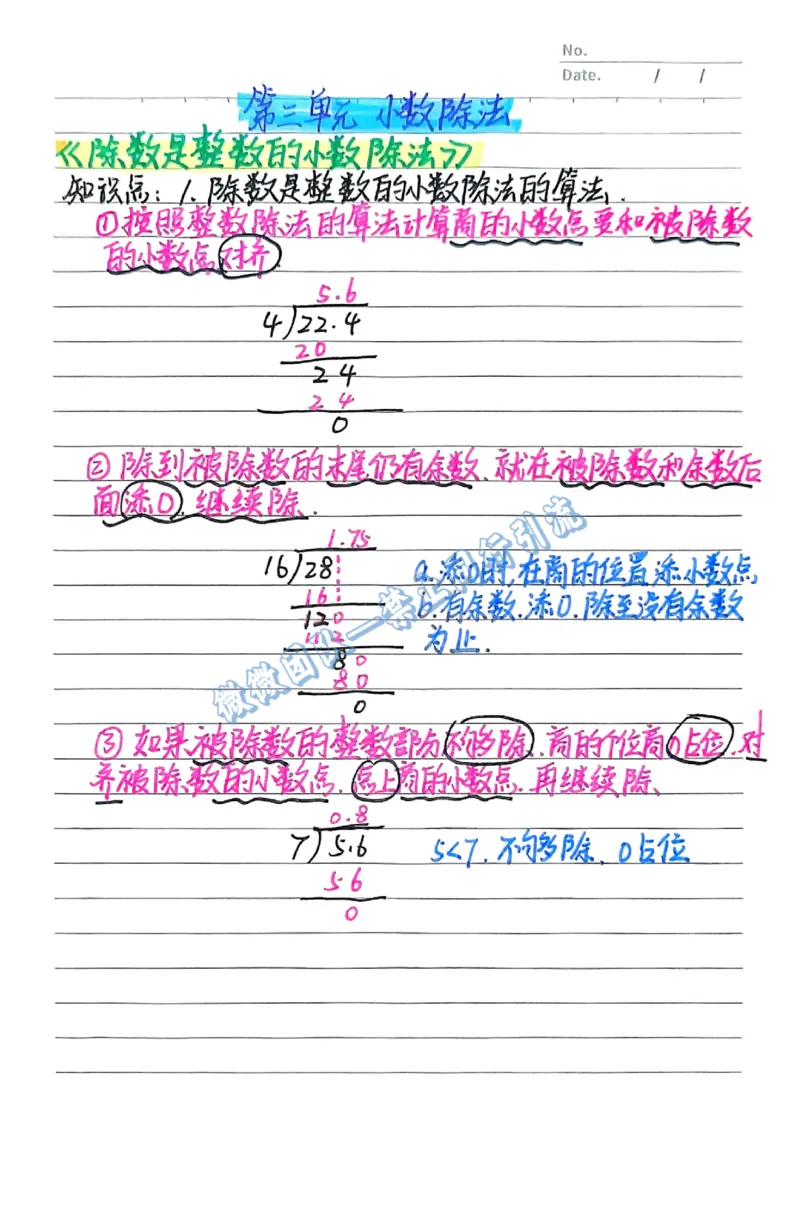 No.
Date. / /
第三单元 小数除法
《除数是整数的小数除法》
知识点: 1. 除数是整数的小数除法的算法.
①按照整数除法的算法计算商的小数点要和被除数
的小数点对齐.
5.6
4)22.4
20
24
24
0
② 除到被除数的末尾仍有余数、就在被除数和余数后
面添0, 继续除.
1.75
16)28
a.添0时,在商的位置添小数点
16
b.有余数.添0.除至没有余数
120
为止.
112
80
80
0
③ 如果被除数的整数部分不够除、商的个位商0占位、对
齐被除数的小数点、点上商的小数点、再继续除、
0.8
7)5.6
5<7、不够除、0占位
56
0
微微团队—禁止引流